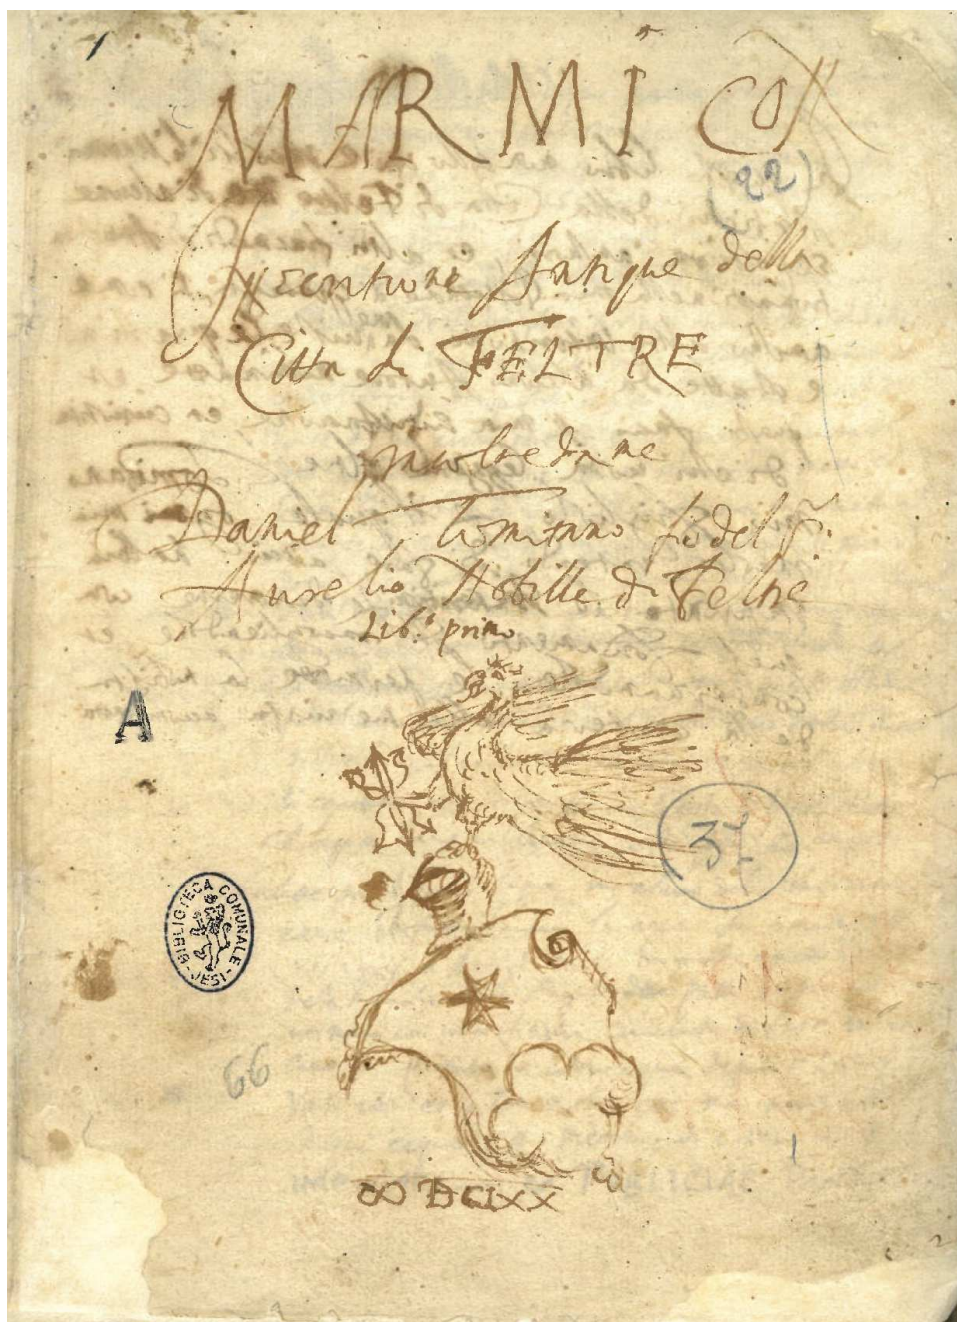 1
MARMI CO
22
Inscrittione Antique della
Citta di FELTRE
racolte da me
Daniel Tomitano fo del
Aurelio Nobille di Feltre
Lib.o primo
A
37
BIBLIOTECA COMUNALE
JESI
66
∞ DCIXX